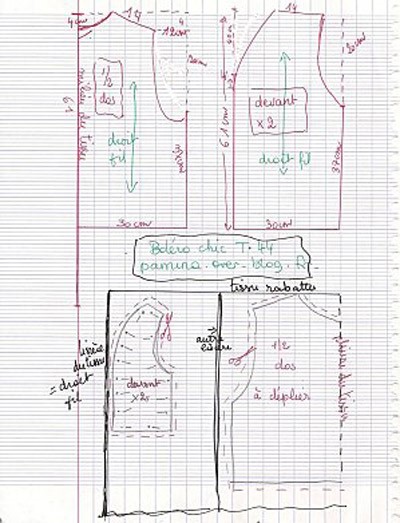 4cm
14
4
12cm
milieu du tissu
61
1/2
dos
droit
fil
30cm
14
20cm
61cm
devant
x 2
droit fil
37cm
30cm
Boléro chic T. 44
pamina.over-blog.fr
tissu rabattu
lisière
du tissu
= droit
fil
devant
x2
autre
1/2
dos
à déplier